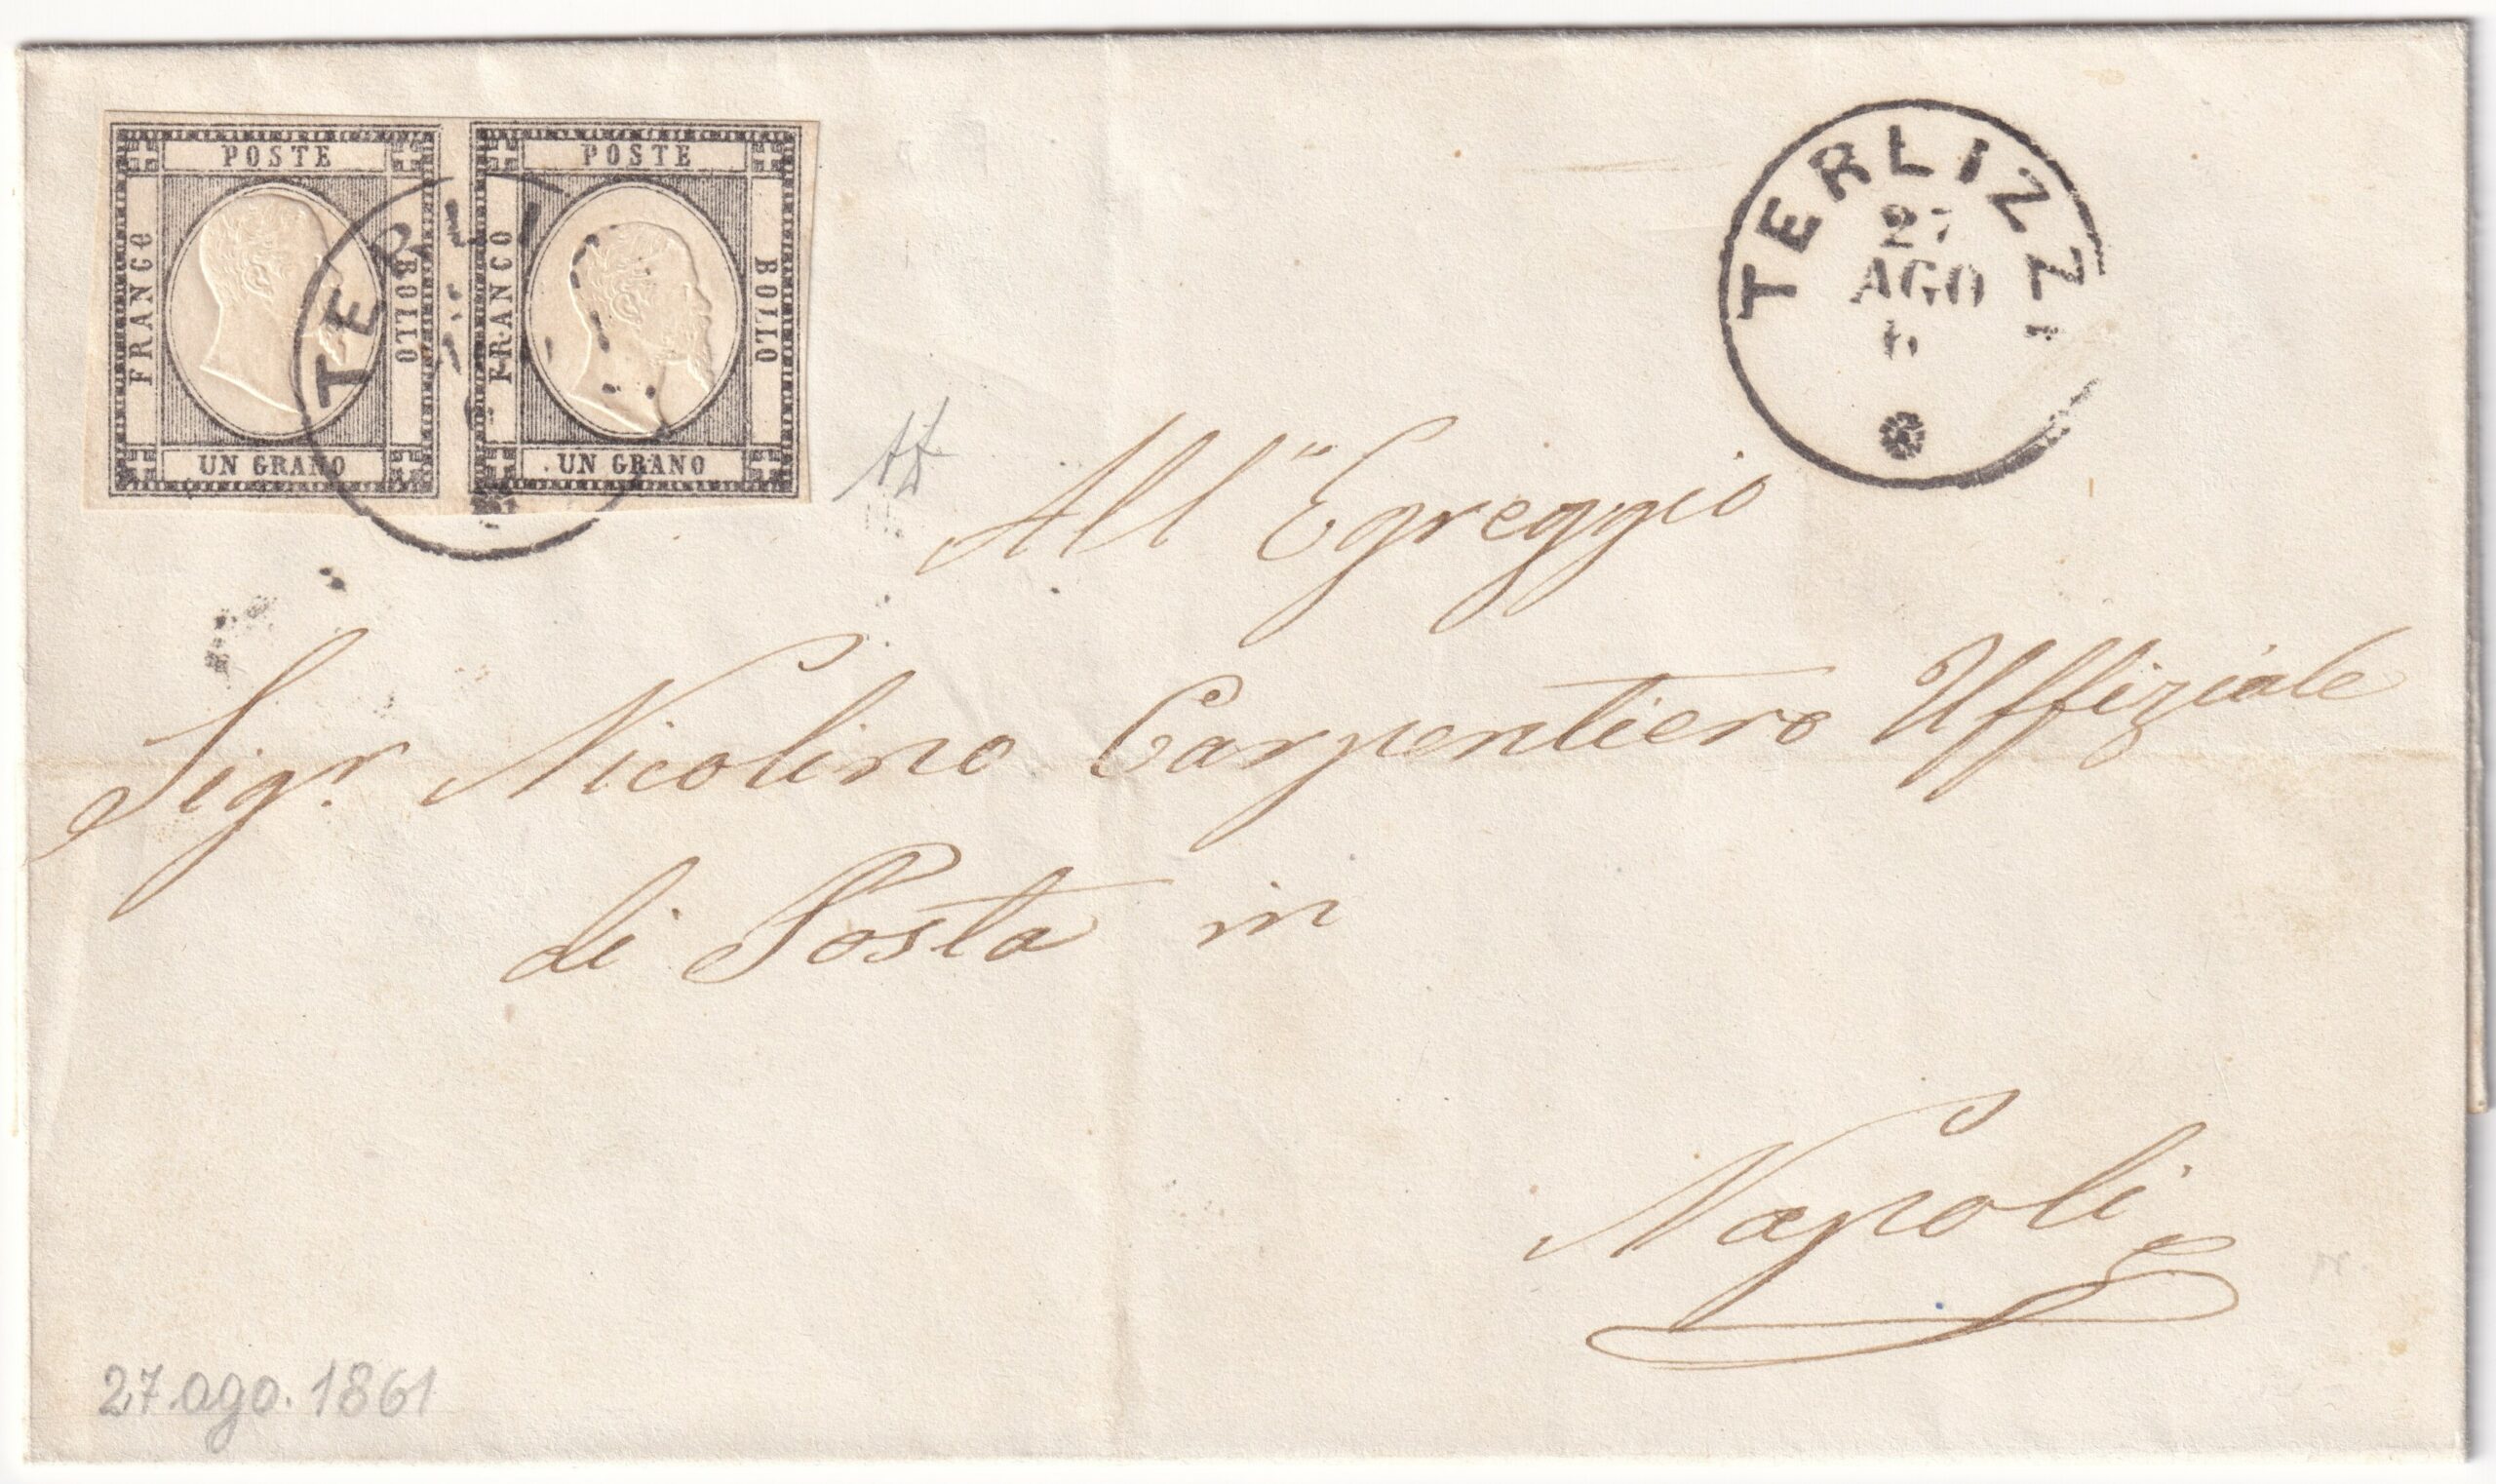 POSTE
FRANCO
BOLLO
UN GRANO
POSTE
FRANCO
BOLLO
UN GRANO
TERLI
TERLIZZI
27
AGO
All'' Egreggio
Sigr. Nicolino Carpentiero Uffiziale
di Posta in
Napoli
27. ago. 1861